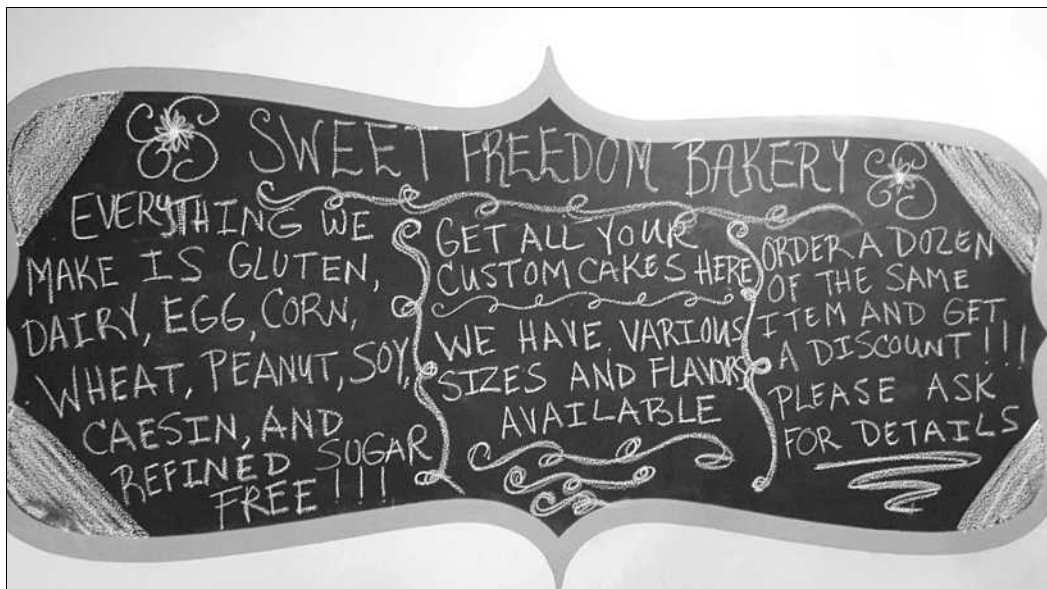 SWEET FREEDOM BAKERY
EVERYTHING WE
MAKE IS GLUTEN,
DAIRY, EGG, CORN,
WHEAT, PEANUT, SOY,
CAESIN, AND
REFINED SUGAR
FREE!!!
GET ALL YOUR
CUSTOM CAKES HERE
WE HAVE VARIOUS
SIZES AND FLAVORS
AVAILABLE
ORDER A DOZEN
OF THE SAME
ITEM AND GET
A DISCOUNT!!!
PLEASE ASK
FOR DETAILS